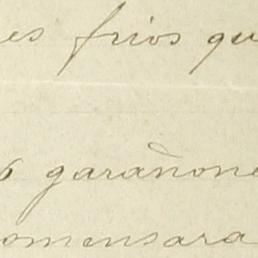 es frios qu
garañone
omensara